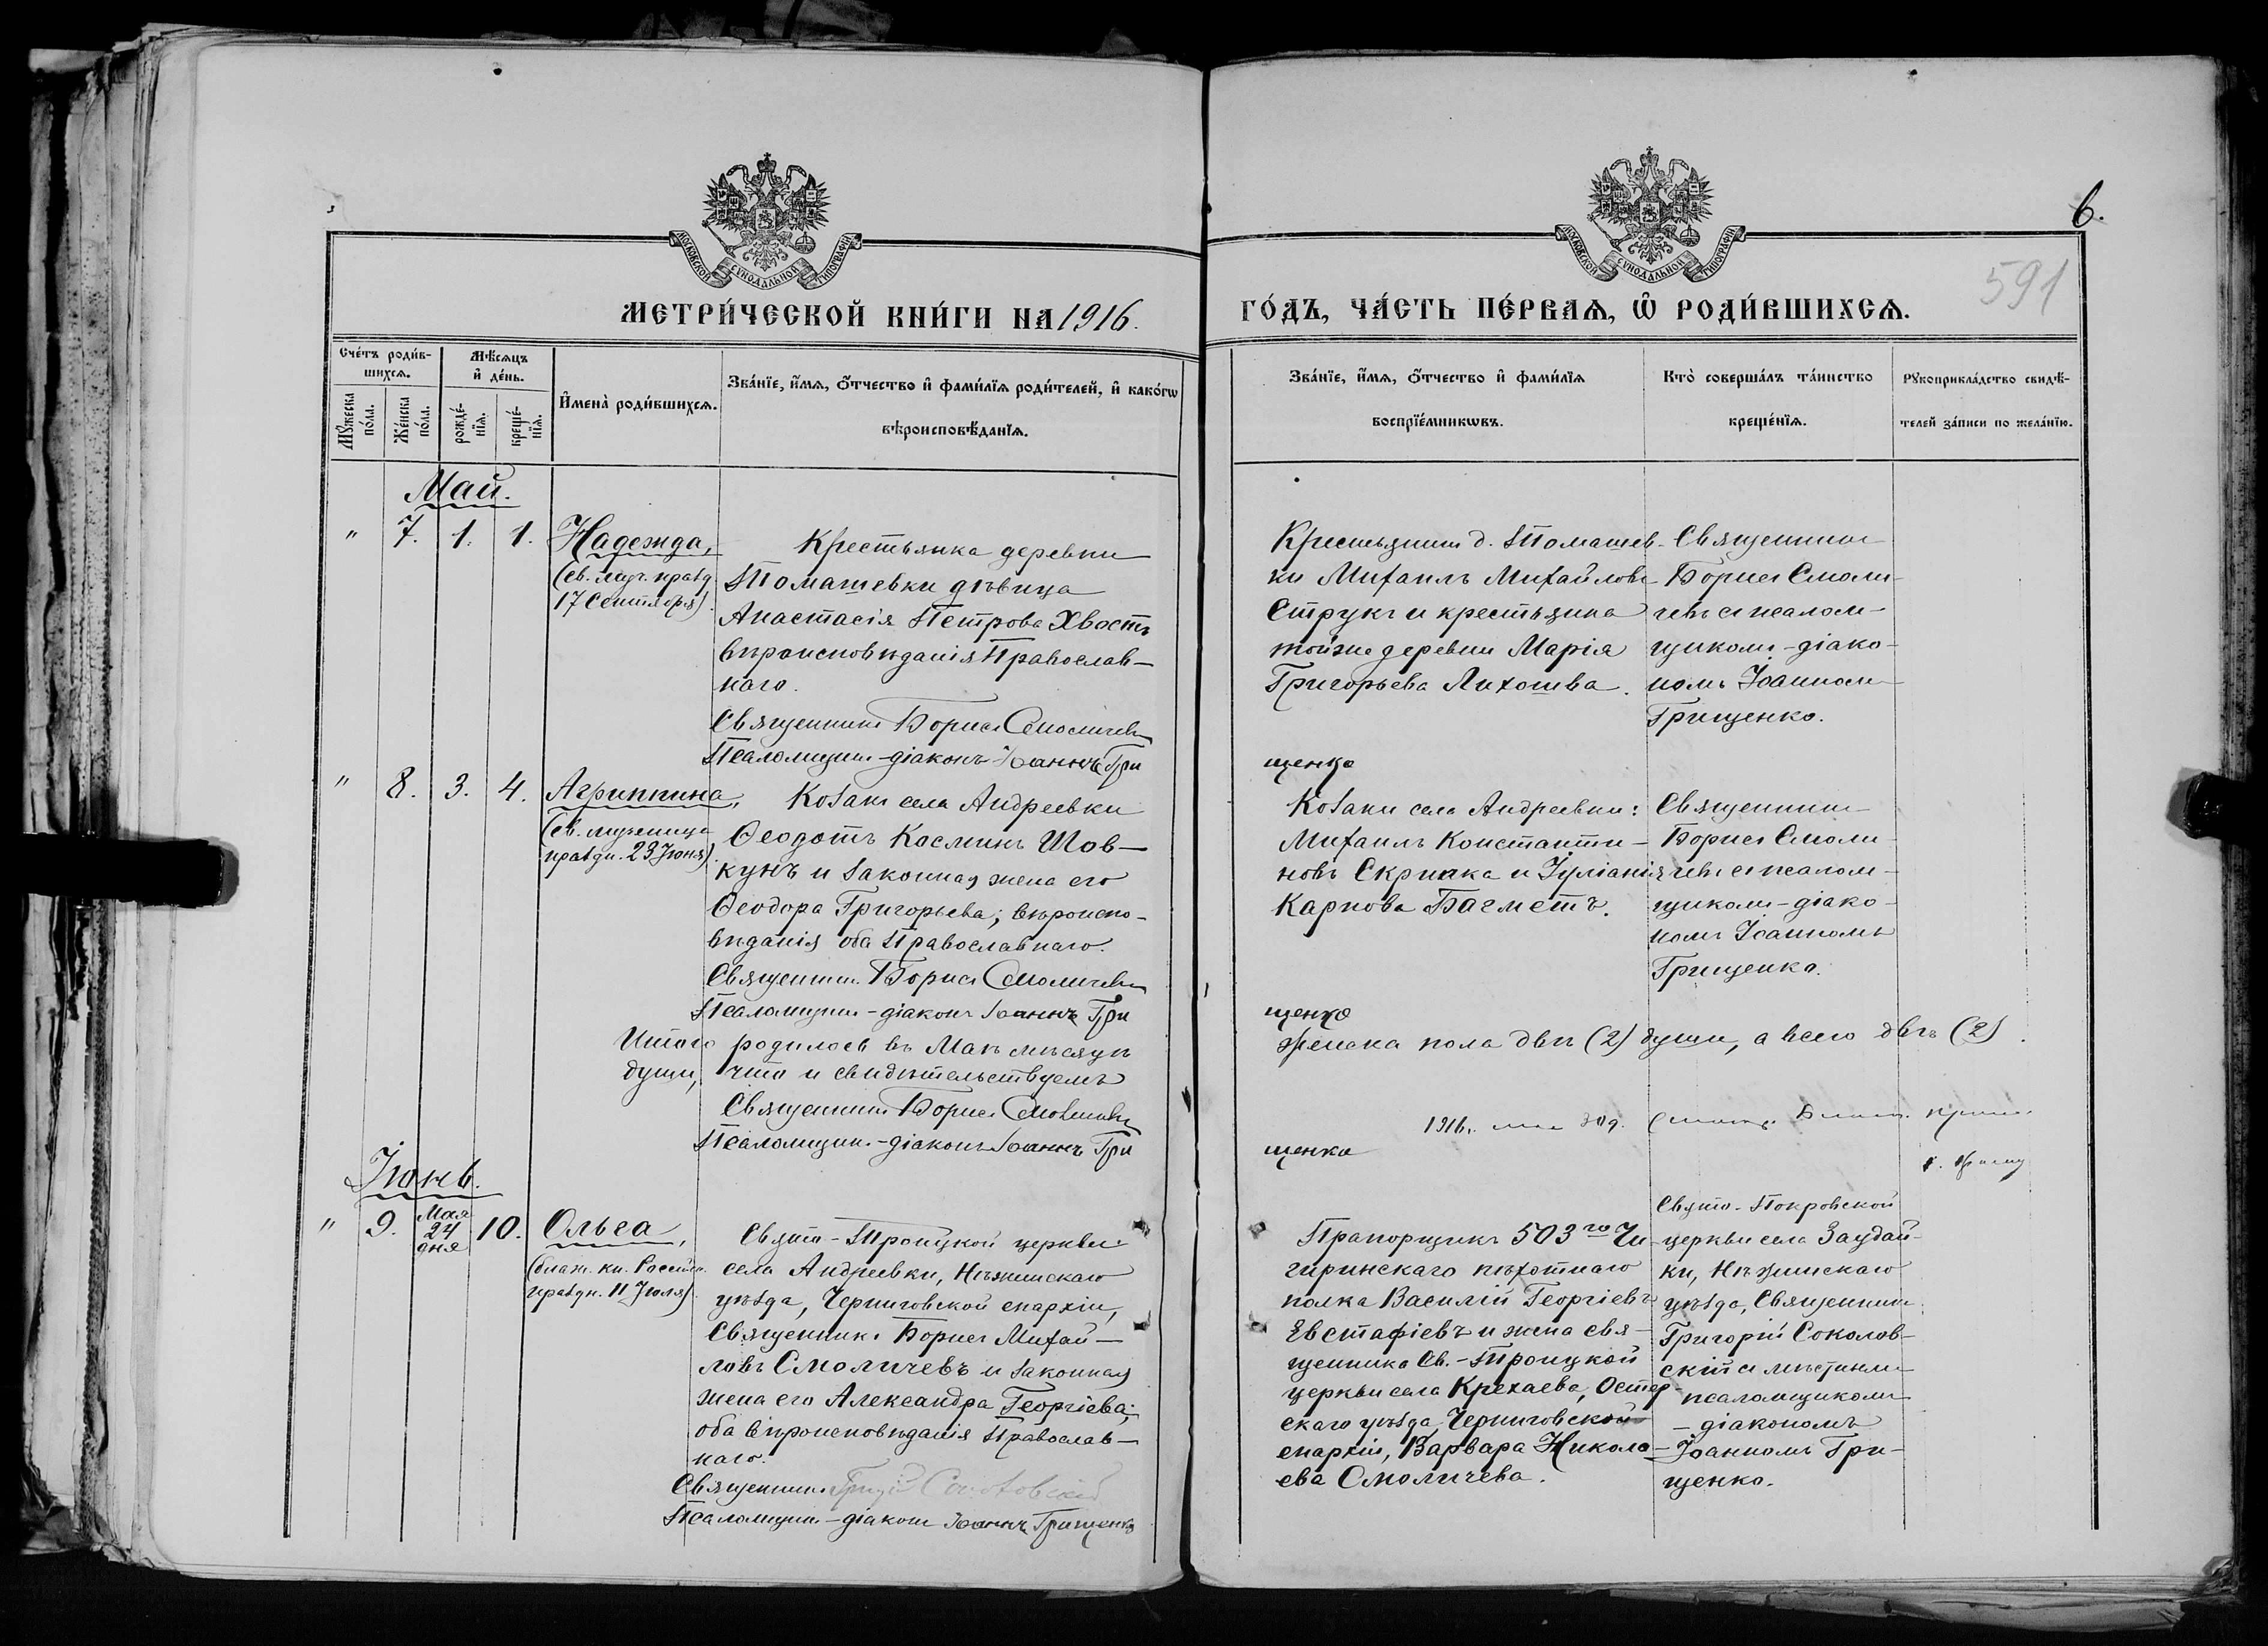 6.
591
МОСКОВСКОЙ СѴНОДАЛЬНОЙ ТИПОГРАФІИ
МОСКОВСКОЙ СѴНОДАЛЬНОЙ ТИПОГРАФІИ
МЕТРИ́ЧЕСКОЙ КНИ́ГИ НА 1916.
ГО́ДЪ, ЧА́СТЬ ПЕ́РВАѦ, Ѽ РОДИ́ВШИХСѦ.
Сче́тъ роди́в-
шихсѧ.
Мѣ́сѧцъ
и҆ де́нь.
Мꙋ́жеска по́ла.
Же́нска по́ла.
рожде́-
нїѧ.
креще́-
нїѧ.
И҆мена̀ роди́вшихсѧ.
Зва́нїе, и҆́мѧ, ѻ҆́тчество и҆ фами́лїѧ роди́телей, и҆ како́гѡ
вѣроисповѣ́данїѧ.
Зва́нїе, и҆́мѧ, ѻ҆́тчество и҆ фами́лїѧ
воспрїе́мникѡвъ.
Кто̀ соверша́лъ та́инство
креще́нїѧ.
Рꙋкоприкла́дство свидѣ́-
телей за́писи по жела́нїю.
Май.
" 7. 1. 1.
Надежда,
(св. муч. празд.
17 Сентября).
Крестьянка деревни
Томашевки дѣвица
Анастасія Петрова Хвость
вѣроисповѣданія Православ-
наго.
Священникъ Борисъ Смоличевъ
Псаломщикъ-діаконъ Іоаннъ Гри
щенко
Крестьянинъ д. Томашев-
ки Михаилъ Михайловъ
Струкъ и крестьянка
тойже деревни Марія
Григорьева Лихошва.
Священникъ
Борисъ Смоли-
чевъ съ псалом-
щикомъ-діако-
номъ Іоанномъ
Грищенко.
" 8. 3. 4.
Агриппина,
(св. мученица
праздн. 23 Іюня).
Козакъ села Андреевки
Ѳеодотъ Косминъ Шов-
кунъ и законная жена его
Ѳеодора Григорьева; вѣроиспо-
вѣданія оба Православнаго.
Священникъ Борисъ Смоличевъ
Псаломщикъ-діаконъ Іоаннъ Гри
щенко
Козаки села Андреевки:
Михаилъ Константи-
новъ Скрипка и Іуліанія
Карпова Багметъ.
Священникъ
Борисъ Смоли-
чевъ съ псалом-
щикомъ-діако-
номъ Іоанномъ
Грищенко.
Итого родилось въ Маѣ мѣсяцѣ женска пола двѣ (2) души, а всего двѣ (2)
души, что и свидѣтельствуемъ
Священникъ Борисъ Смоличевъ
Псаломщикъ-діаконъ Іоаннъ Гри
щенко
1916. мая 30 д.
Іюнь.
" 9. Мая
24
дня 10.
Ольга,
(благ. кн. Россійс.
праздн. 11 Іюля).
Свято-Троицкой церкви
села Андреевки, Нѣжинскаго
уѣзда, Черниговской епархіи,
Священникъ Борисъ Михай-
ловъ Смоличевъ и законная
жена его Александра Георгіева;
оба вѣроисповѣданія Православ-
наго.
Священникъ Григорій Соколовскій
Псаломщикъ-діаконъ Іоаннъ Грищенко
Прапорщикъ 503го Чи-
гиринскаго пѣхотнаго
полка Василій Георгіевъ
Евстафіевъ и жена свя-
щенника Св.-Троицкой
церкви села Крехаева, Остер-
скаго уѣзда Черниговской
епархіи, Варвара Никола-
ева Смоличева.
Свято-Покровской
церкви села Заудай-
ки, Нѣжинскаго
уѣзда, Священникъ
Григорій Соколов-
скій съ мѣстнымъ
псаломщикомъ
-діакономъ
Іоанномъ Гри-
щенко.